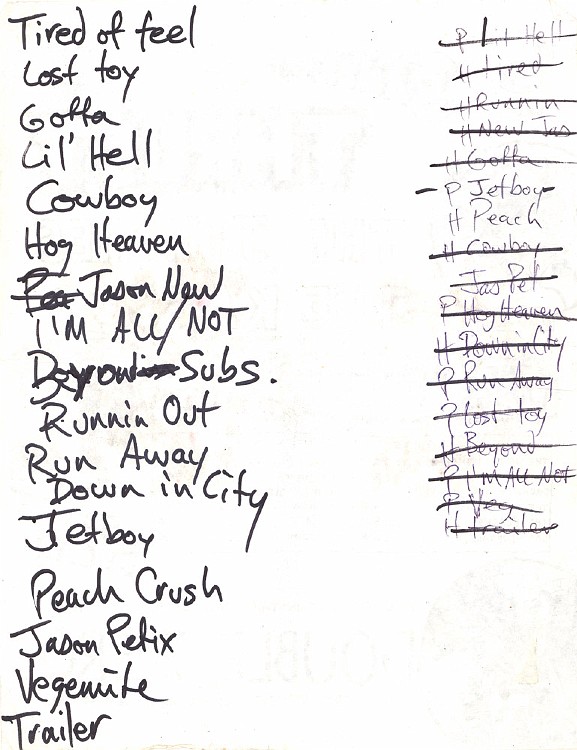 Tired of feel
Lost toy
Gotta
Lil' Hell
Cowboy
Hog Heaven
Pea Jason New
I'M ALL NOT
Beyond Subs.
Runnin Out
Run Away
Down in City
Jetboy
Peach Crush
Jason Petix
Vegemite
Trailer
P Lit Hell
H Tired
H Runnin
H New Jas
H Gotta
- P Jetboy -
H Peach
H Cowboy
Jas Pet
P Hog Heaven
H Down in City
P Run Away
P Lost toy
H Beyond
P I'M ALL NOT
P Veg
H Trailer